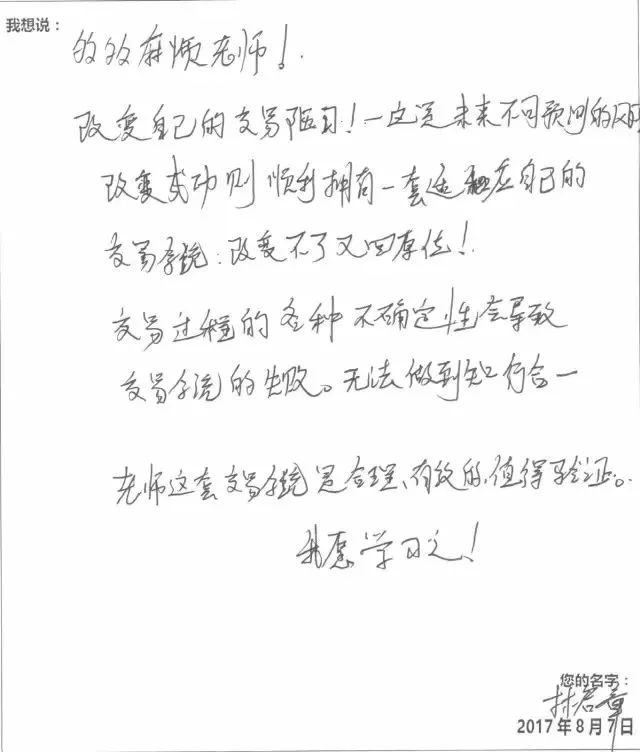 我想说：
效效麻烦老师！
改变自己的交易陋习！一这是未来不可预测的风险
改变成功则顺利拥有一套适应自己的
交易系统：改变不了又回原位！
交易过程的各种不确定性会导致
交易系统的失败。无法做到知行合一
老师这套交易系统是合理、有效的，值得验证。
我愿学习之！
您的名字：
林君章
2017年8月7日